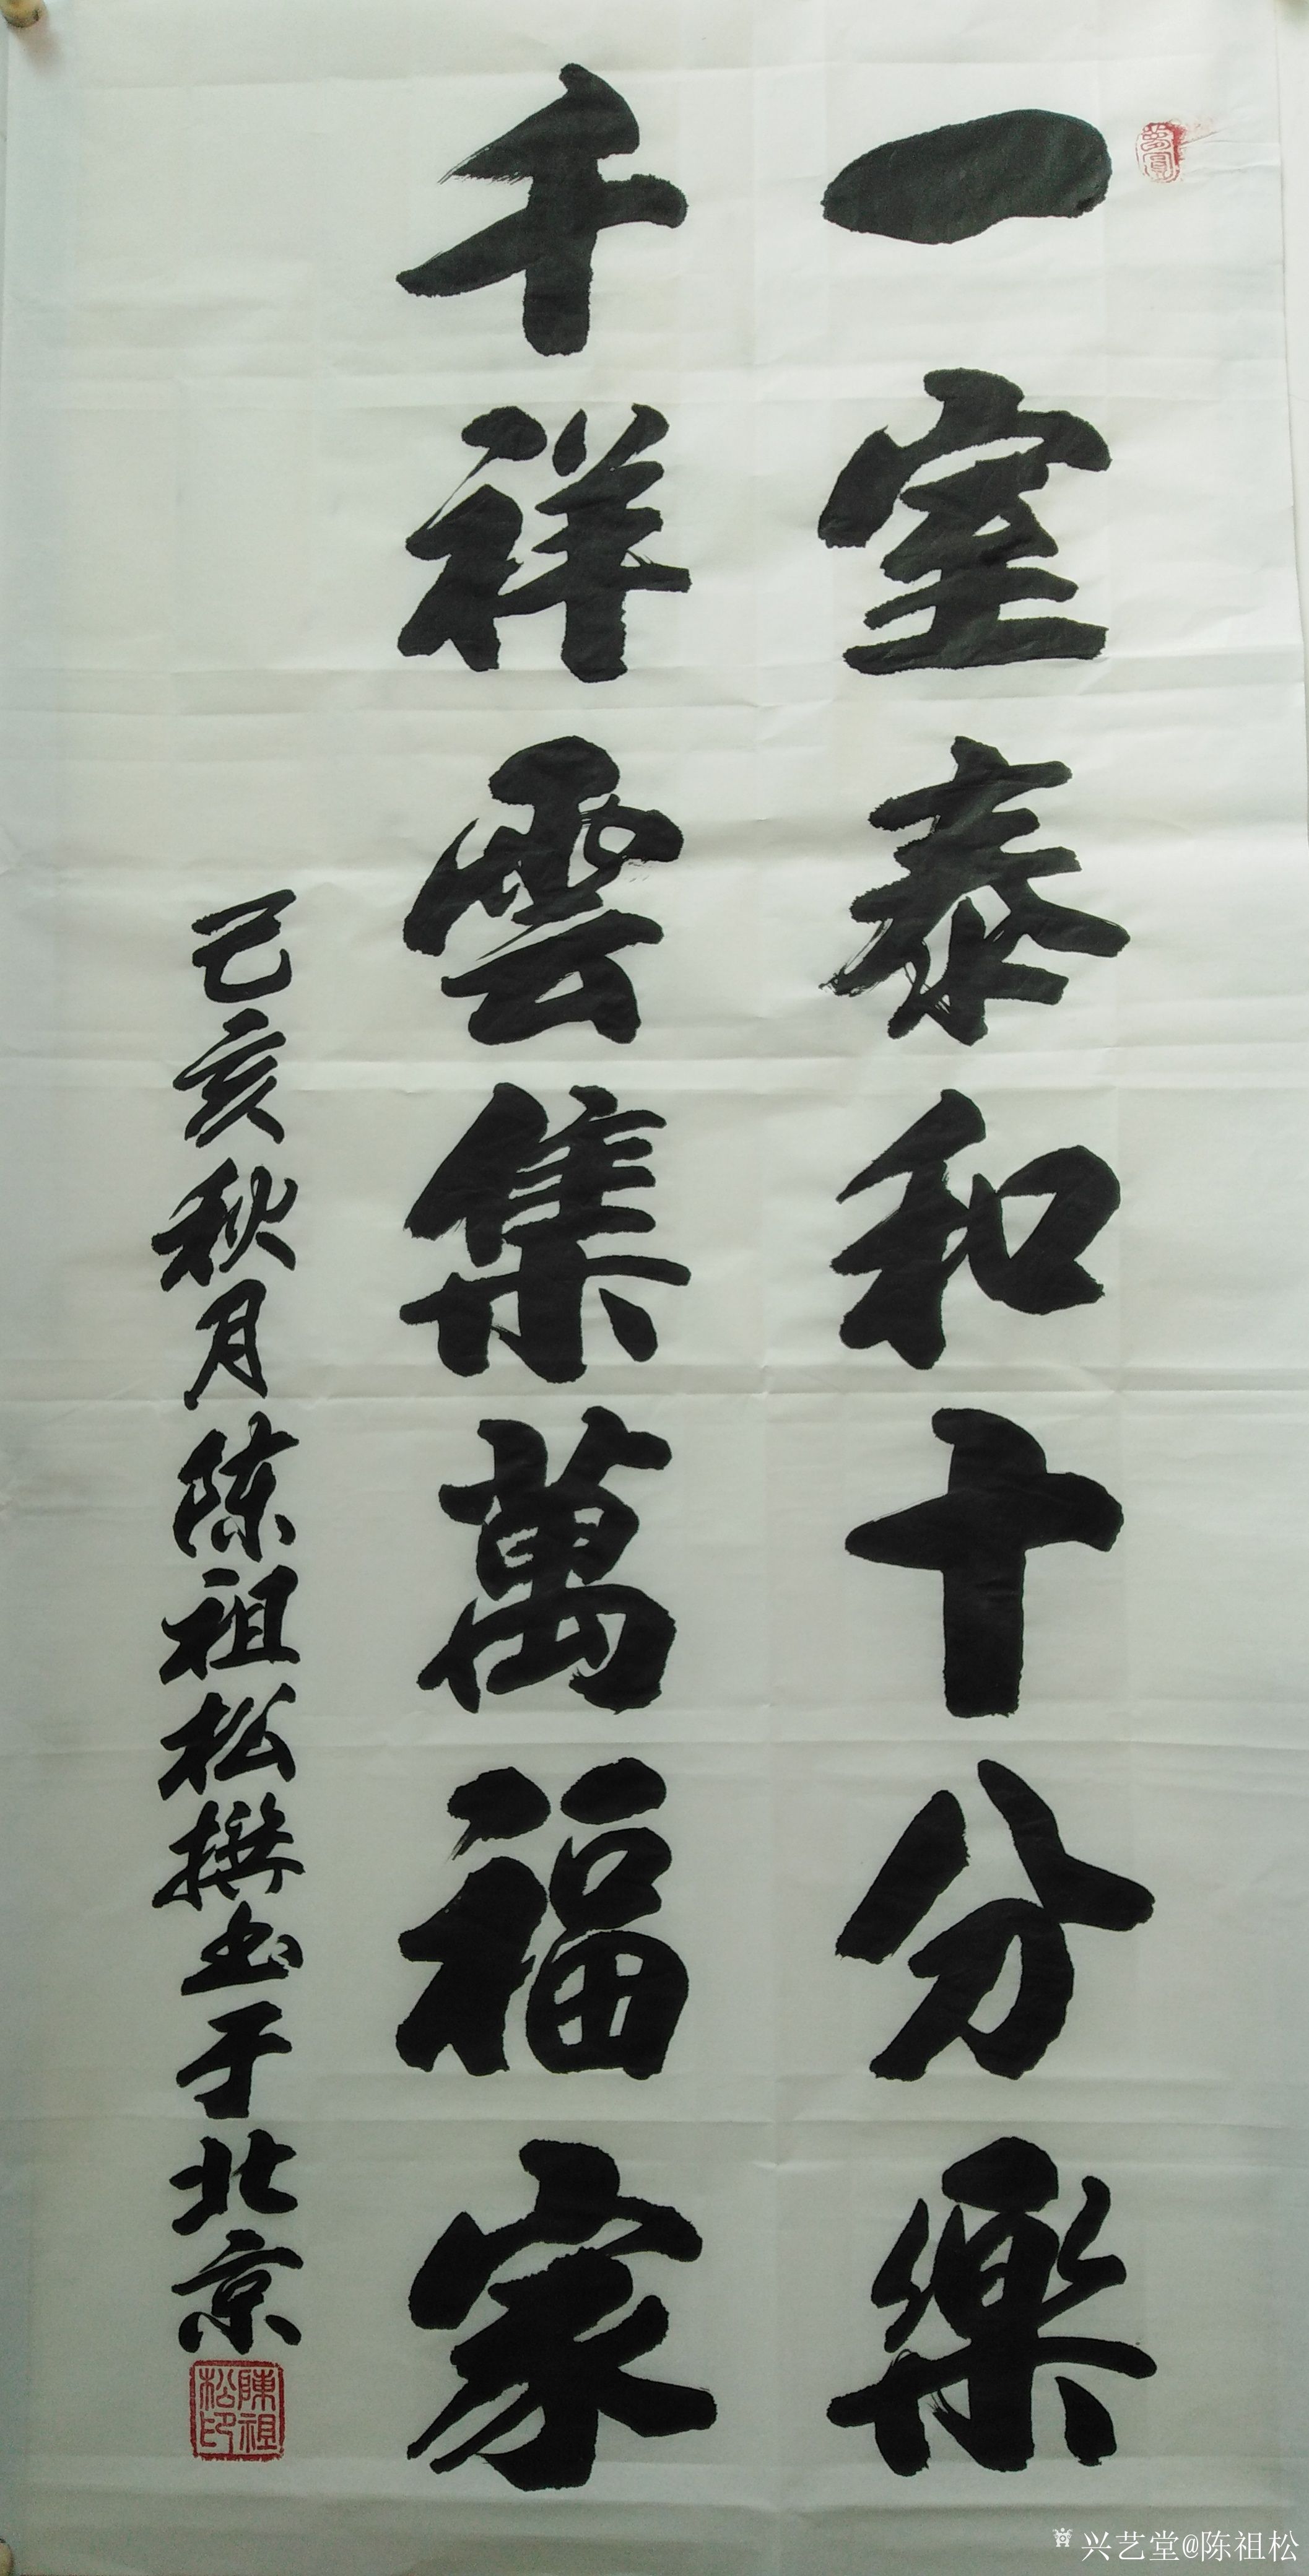 一室泰和十分樂
千祥雲集萬福家
己亥秋月陈祖松撰书于北京
陳祖松印
兴艺堂@陈祖松